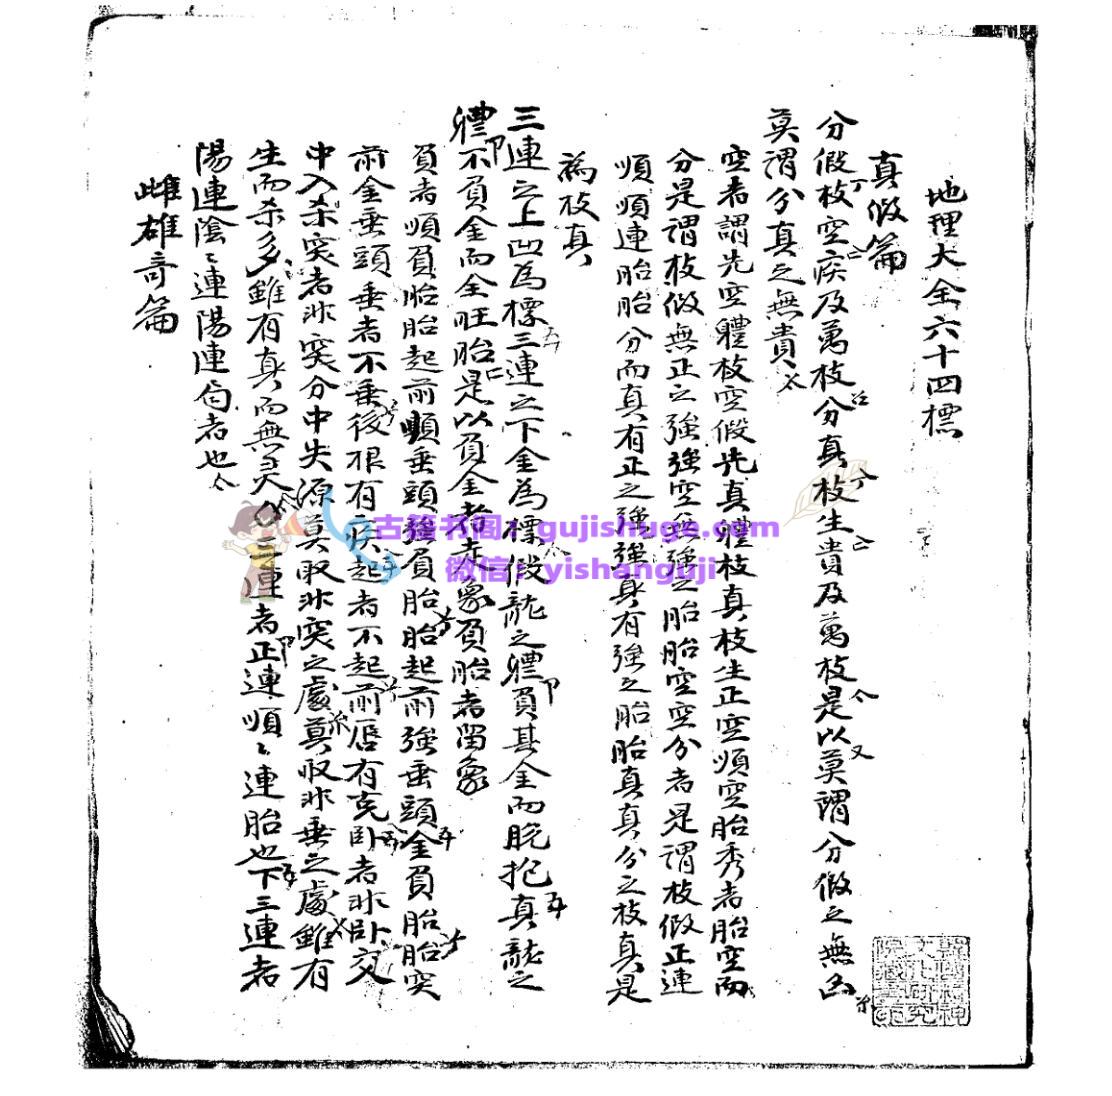 地理大全六十四標
真假篇
分假枝空疾及萬枝分真枝生貴及萬枝是以莫謂分假之無凶
莫謂分真之無貴
空者謂先空軆枝空假先真軆枝真枝生正空順空胎秀者胎空而
分是謂枝假無正之強強空無強之胎胎空空分者是謂枝假正連
順順連胎胎分而真有正之強強真有強之胎胎真真分之枝真是
為枝真
三連之上凹為標三連之下金為標假龍之軆負其金而脫抱真龍之
軆不負金而全旺胎是以負金者弃象負胎者留象
負者順負胎胎起前順垂頭強負胎胎起前強垂頭金負胎胎突
前金垂頭垂者不垂後根有疾起者不起前唇有克卧者非卧交
中入杀突者非突分中失源莫取非突之處莫取非垂之處雖有
生而杀多雖有真而無灵 三連者正連順〻連胎也下三連者
陽連陰〻連陽陽連匀者也
雌雄奇篇
古籍书阁：gujishuge.com
微信：yishanguji